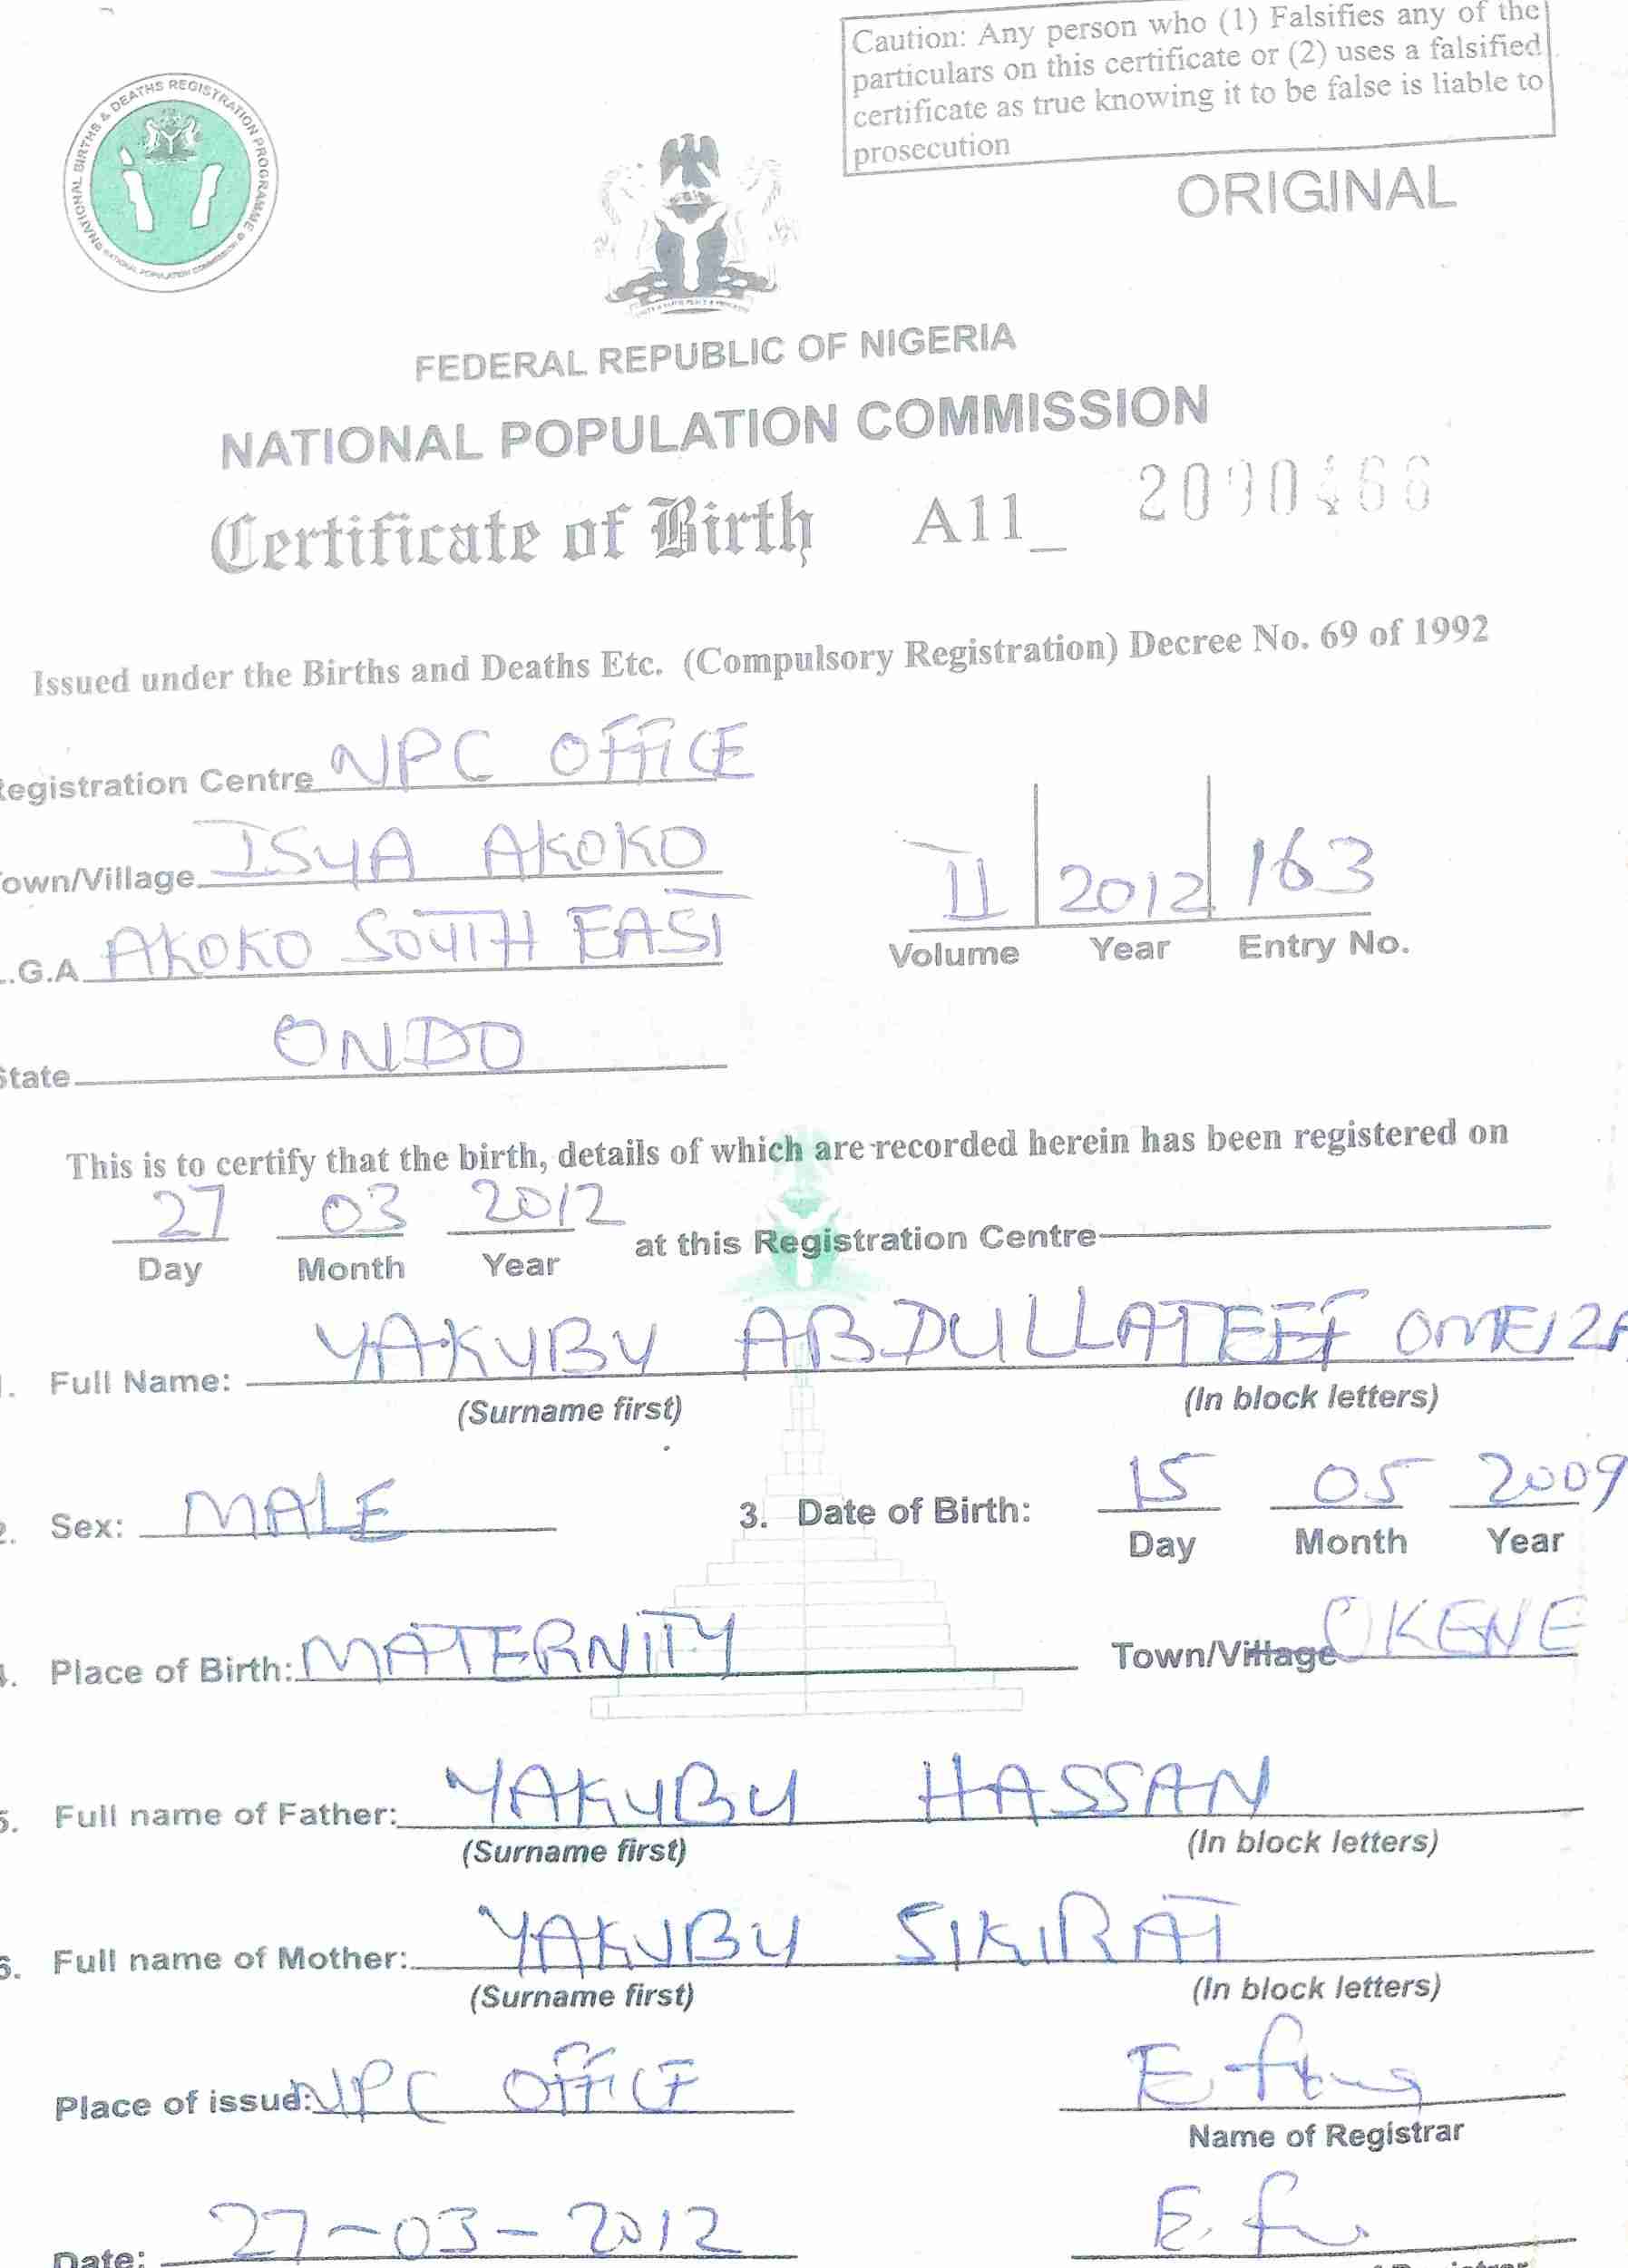 Caution: Any person who (1) Falsifies any of the
particulars on this certificate or (2) uses a falsified
certificate as true knowing it to be false is liable to
prosecution
NATIONAL BIRTHS & DEATHS REGISTRATION PROGRAMME
NATIONAL POPULATION COMMISSION
ORIGINAL
FEDERAL REPUBLIC OF NIGERIA
NATIONAL POPULATION COMMISSION
Certificate of Birth A11_
Issued under the Births and Deaths Etc. (Compulsory Registration) Decree No. 69 of 1992
Registration Centre NPC OFFICE
Town/Village ISUA AKOKO
II 2012 163
Volume Year Entry No.
L.G.A AKOKO SOUTH EAST
State ONDO
This is to certify that the birth, details of which are recorded herein has been registered on
27 03 2012 at this Registration Centre
Day Month Year
1. Full Name: YAKUBU ABDULLATEEF OMEIZA
(Surname first) (In block letters)
2. Sex: MALE 3. Date of Birth: 15 05 2009
Day Month Year
4. Place of Birth: MATERNITY Town/Village OKENE
5. Full name of Father: YAKUBU HASSAN
(Surname first) (In block letters)
6. Full name of Mother: YAKUBU SIKIRAT
(Surname first) (In block letters)
Place of issue: NPC OFFICE
Name of Registrar
Date: 27-03-2012